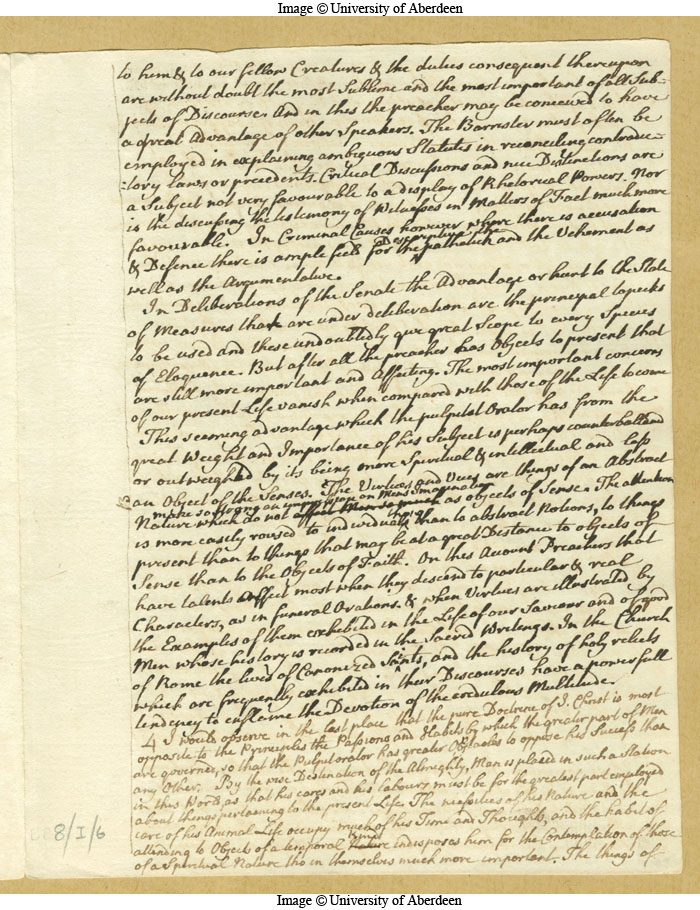 Image © University of Aberdeen
to him & to our fellow Creatures & the duties consequent thereupon
are without doubt the most Sublime and the most important of all Sub-
jects of Discourse. And in this the preacher may be conceived to have
a great Advantage of other Speakers. The Barrister must often be
employed in explaining ambiguous Statutes in reconciling contradic-
-tory laws or precedents. Critical Discussions and nice Distinctions are
a Subject not very favourable to a display of Rhetorical Powers. Nor
is the discussing the testimony of Witnesses in Matters of Fact much more
favourable. In Criminal Causes however where there is accusation
& Defence there is ample field for the Descriptive the pathetick and the Vehement as
well as the Argumentative.
In Deliberations of the Senate the Advantage or hurt to the State
of Measures that are under deliberation are the principal topicks
to be used and these undoubtedly give great Scope to every Species
of Eloquence. But after all the preacher has Objects to present that
are still more important and Affecting. The most important concerns
of our present Life vanish when compared with those of the Life to come
This seeming advantage which the pulpit Orator has from the
great Weight and Importance of his Subject is perhaps counterballancd
or outweighed by its being more Spiritual & intellectual and less
an Object of the Senses. The Virtues and Vices are things of an Abstract
make so strong an impression on Mens imagination
Nature which do not as objects of Sense. The attention
is more easily roused to individuals than to abstract Notions, to things
present than to things that may be at a great Distance to objects of
Sense than to the Objects of Faith. On this Account Preachers that
have talents affect most when they descend to particular & real
Characters, as in funeral Orations. & when Virtues are illustrated by
the Examples of them exhibited in the Life of our Saviour and of good
Men whose history is recorded in the Sacred Writings. In the Church
of Rome the lives of Canonized Saints, and the history of holy relicts
which are frequently exhibited in their Discourses have a powerfull
tendency to enflame the Devotion of the credulous Multitude.
4 I would observe in the last place that the pure Doctrine of J. Christ is most
opposite to the Principles the Passions and Habits by which the greater part of Men
are governed, so that the Pulpit orator has greater Obstacles to oppose his Success than
any Other. By the wise Destination of the Almighty, Man is placed in such a Station
in this World, as that his cares and his labours must be for the greatest part employed
about things pertaining to the present Life. The necessities of his Nature and the
care of his Animal Life occupy much of his Time and Thoughts, and the habit of
attending to Objects of a temporal kind indisposes him for the Contemplation of those
of a Spiritual Nature tho in themselves much more important. The things of
8/I/6
Image © University of Aberdeen